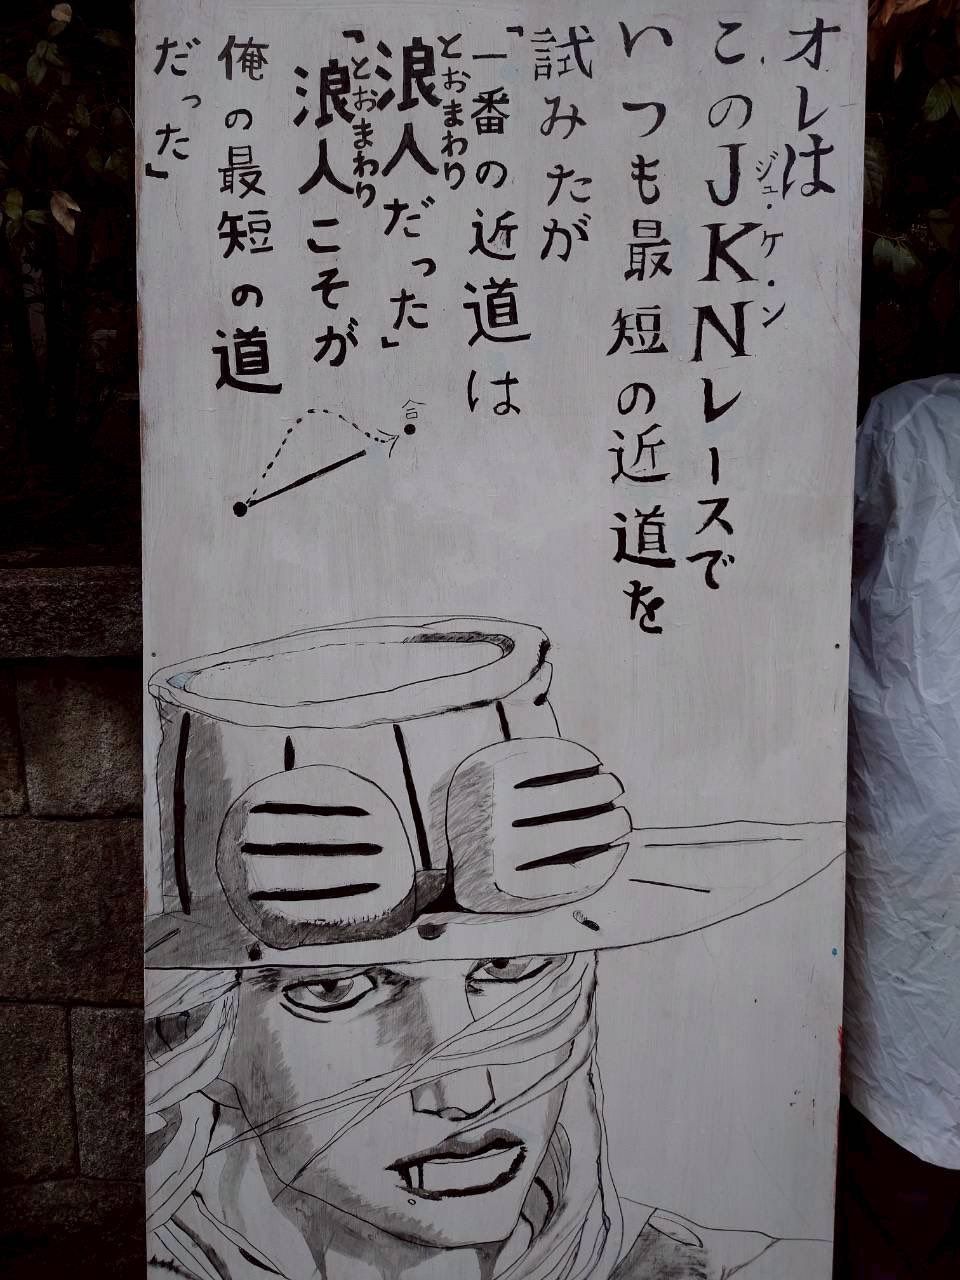 オレは
このJKNレースで
ジュ・ケ・ン
いつも最短の近道を
試みたが
「一番の近道は
浪人だった」
とおまわり
「浪人こそが
とおまわり
俺の最短の道
だった」
合